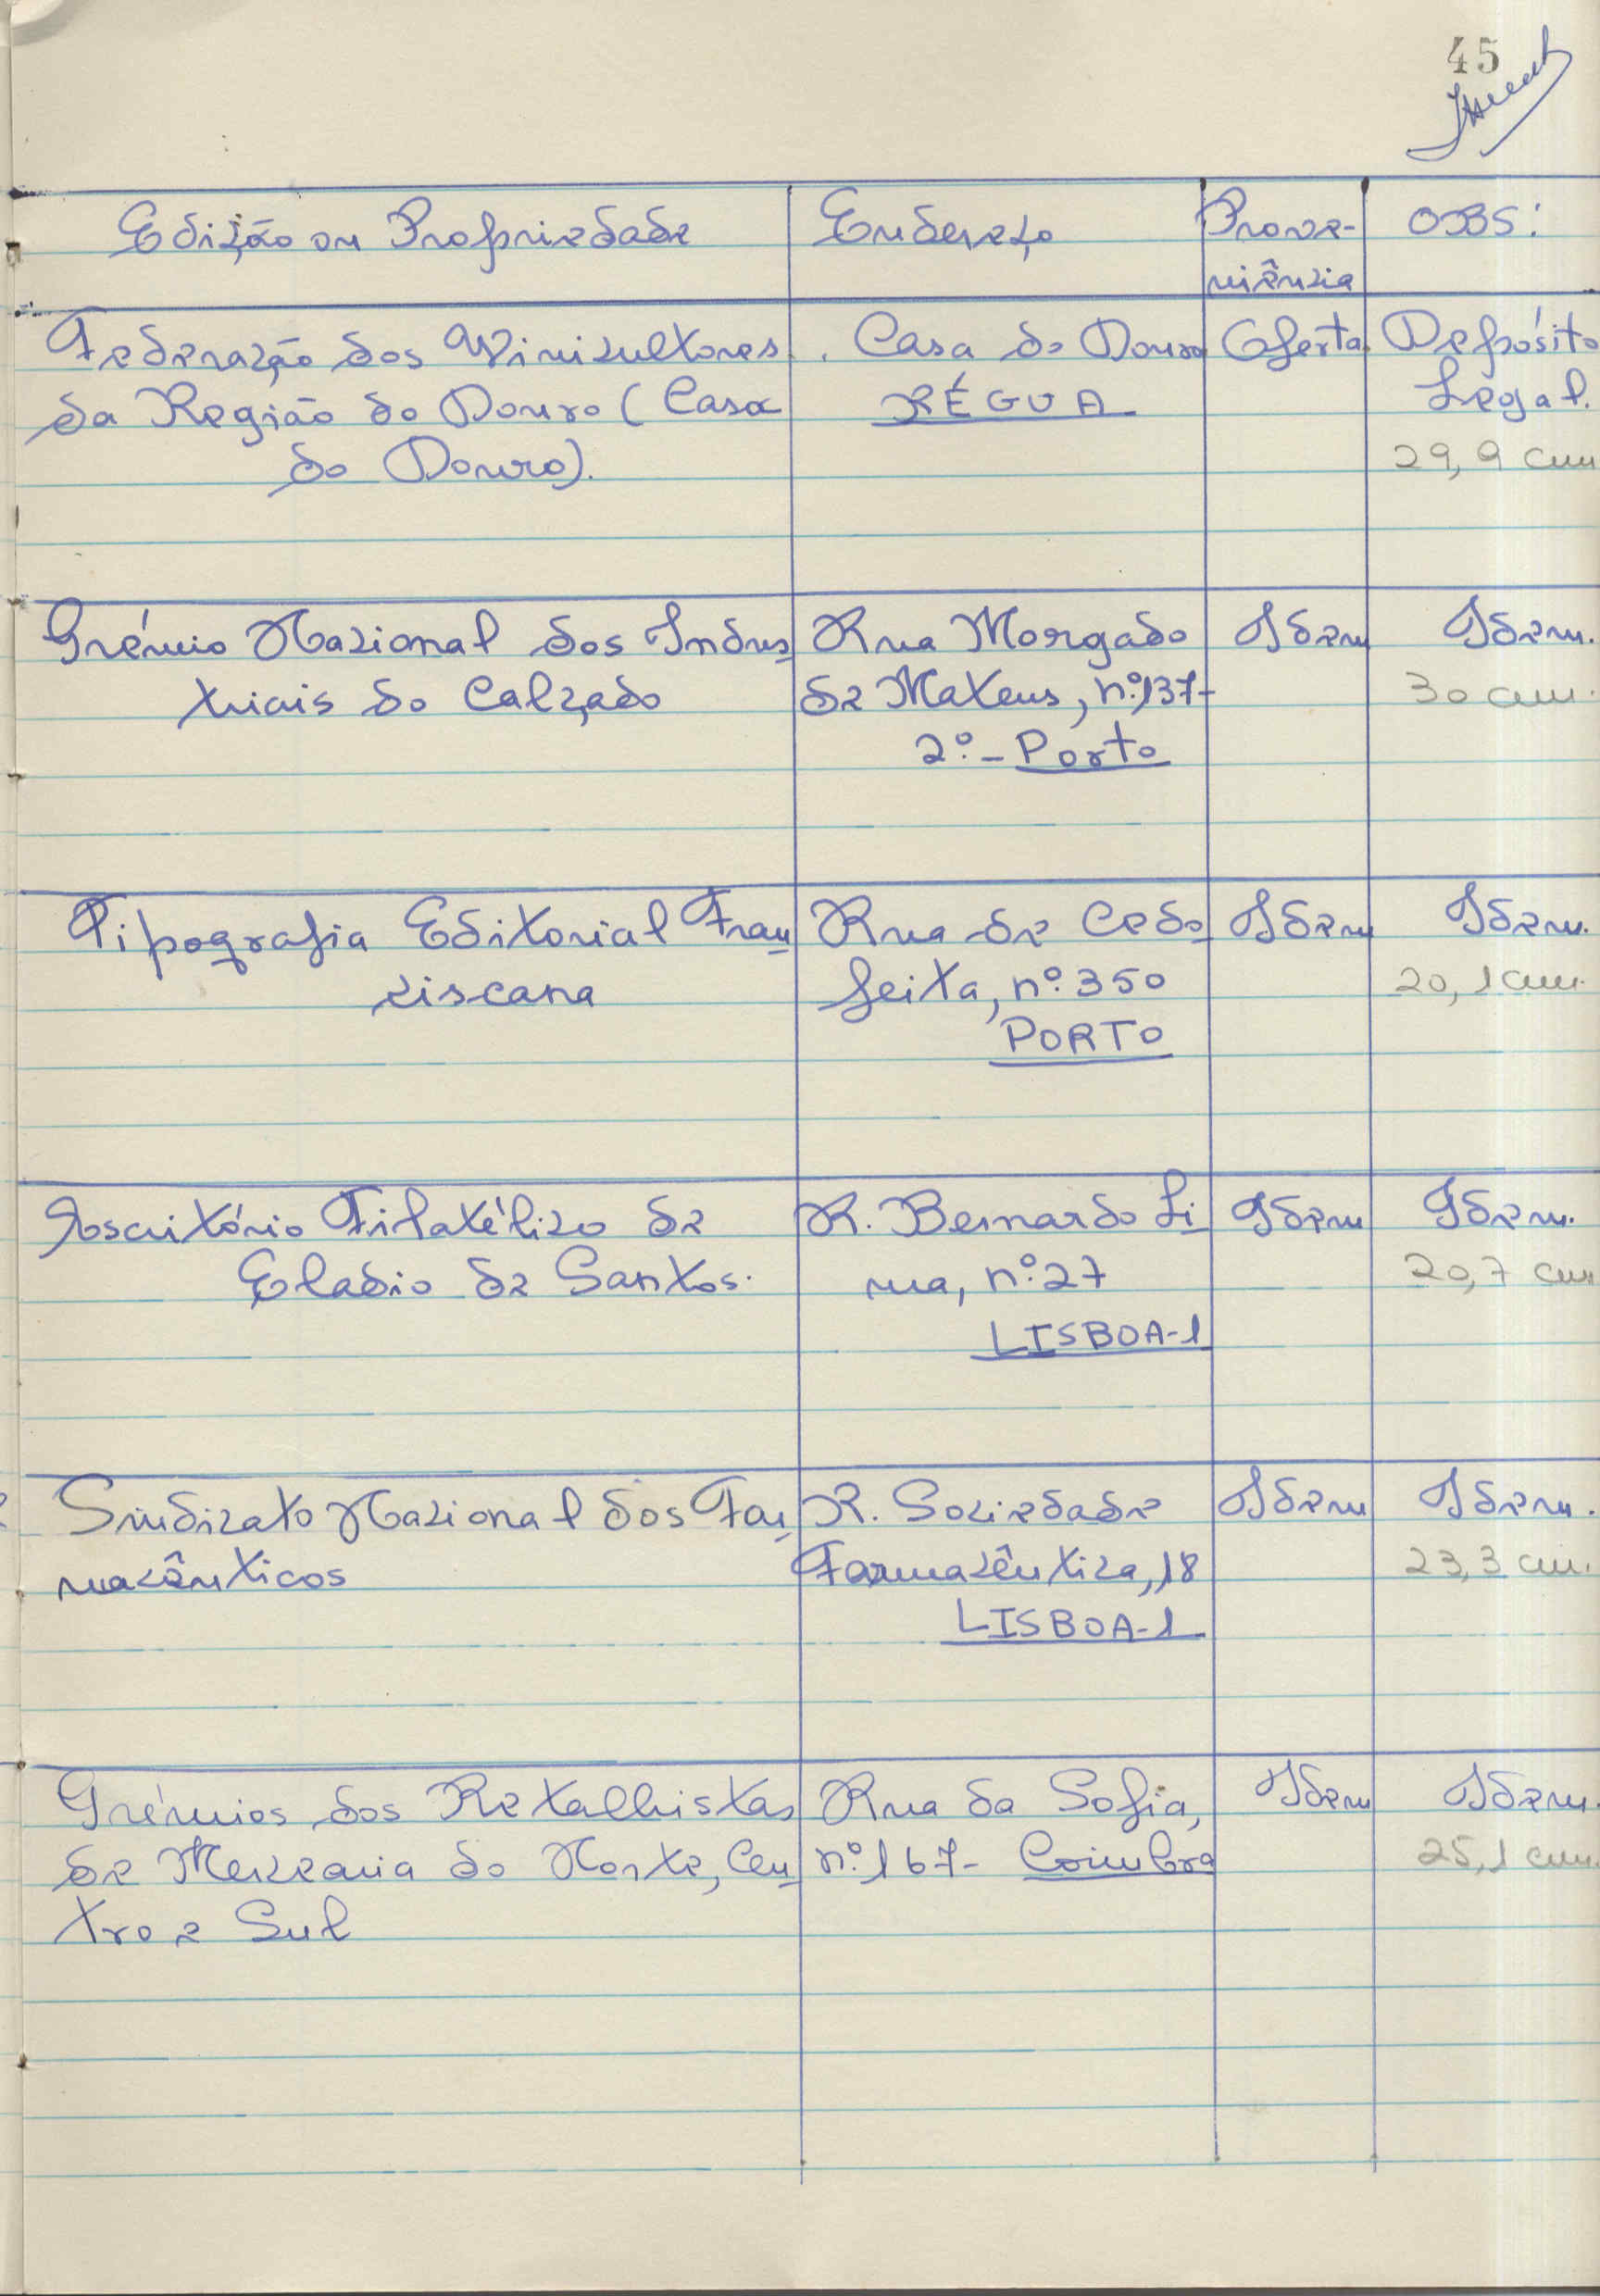 45
Edição ou Propriedade Endereço Prove- OBS:
niência
Federação dos Vinicultores Casa do Douro Oferta Depósito
da Região do Douro (Casa RÉGUA Legal.
do Douro). 29,9 cm
Grémio Nacional dos Indus Rua Morgado Idem Idem.
triais do Calçado de Mateus, nº 137- 30 cm.
2º - Porto
Tipografia Editorial Fran Rua de Cedo Idem Idem.
ciscana feita, nº 350 20,1 cm.
PORTO
Escritório Filatélico de R. Bernardo Li Idem Idem.
Eladio de Santos. ma, nº 27 20,7 cm
LISBOA-1
Sindicato Nacional dos Far R. Sociedade Idem Idem.
macêuticos Farmacêutica, 18 23,3 cm.
LISBOA-1
Grémios dos Retalhistas Rua da Sofia, Idem Idem.
de Mercearia do Norte, Cen nº 167- Coimbra 25,1 cm.
tro e Sul